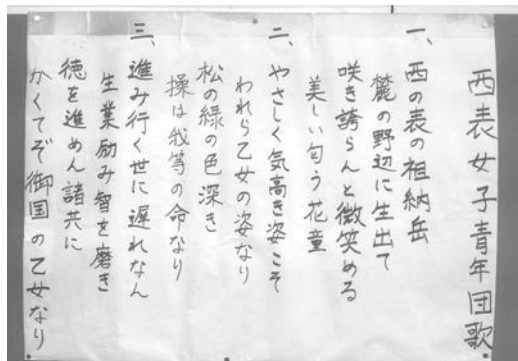 西表女子青年団歌
一、西の表の祖納岳
麓の野辺に生出て
咲き誇らんと微笑める
美しい匂う花童
二、やさしく気高き姿こそ
われら乙女の姿なり
松の緑の色深き
操は我等の命なり
三、進み行く世に遅れなん
生業励み智を磨き
徳を進めん諸共に
かくてぞ御国の乙女なり